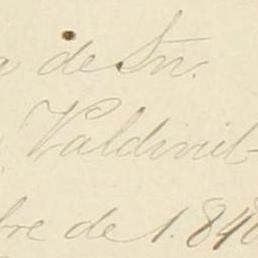 a de Sn.
Valdivil-
bre de 1.840